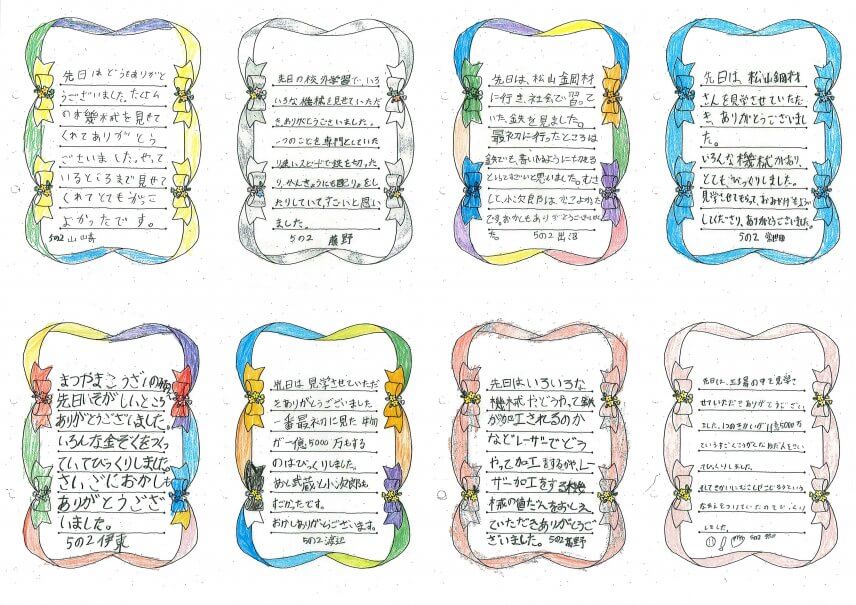 先日はどうもありがと
うございました。たくさん
の木幾木戒を見せて
くれてありがとう
ございました。やって
いるところまで見せて
くれてとてもかっこ
よかったです。
5の2 山崎
先日の校外学習で、いろ
いろな機械を見せていただ
き、ありがとうございました。
一つのことを専門としていた
り速いスピードで鉄を切った
り、かんきょうにも配りょをし
たりしていて、すごいと思い
ました。
5の2 藤野
先日は、松山鋼材
に行き、社会で習って
いた、鉄を見ました。
最初に行ったところは
鉄でも、書いたように切れる
といってすごいと思いました。むさ
しと、小次郎は、かっこよかった
です。おかしもありがとうございまし
た。
5の2 出沼
先日は、松山鋼材
さんを見学させていただ
き、ありがとうございまし
た。
いろんな機械があり、
とてもびっくりしました。
見学させてもらって、おみやげもよういし
してくださり、ありがとうございました。
5の2
まつやまこうざいの皆さん
先日いそがしいところ
ありがとうございました。
いろんな金ぞくをつくっ
ていてびっくりしました。
さいごにおかしも
ありがとうござ
いました。
5の2 伊東
先日は見学させていただ
きありがとうございました
一番最初に見た物
が一億5000万もする
のはびっくりしました。
あと武蔵と小次郎も
すごかったです。
おかしありがとうございます。
5の2 渡辺
先日はいろいろな
機械やどうやって鉄
が加工されるのか
などレーザでどう
やって加工するかや、レー
ザー加工をする機
械の値だんをおしえ
ていただきありがとうご
ざいました。5の2 髙野
先日は、工場の中を見学さ
せていただきありがとうござい
ました。1つのきかいが1億5000万
というすごくこうかなねだんをきい
てびっくりしました。
そしてきかいにむさしやこじろうという
なまえをつけていたのでびっくり
しました。
5の2